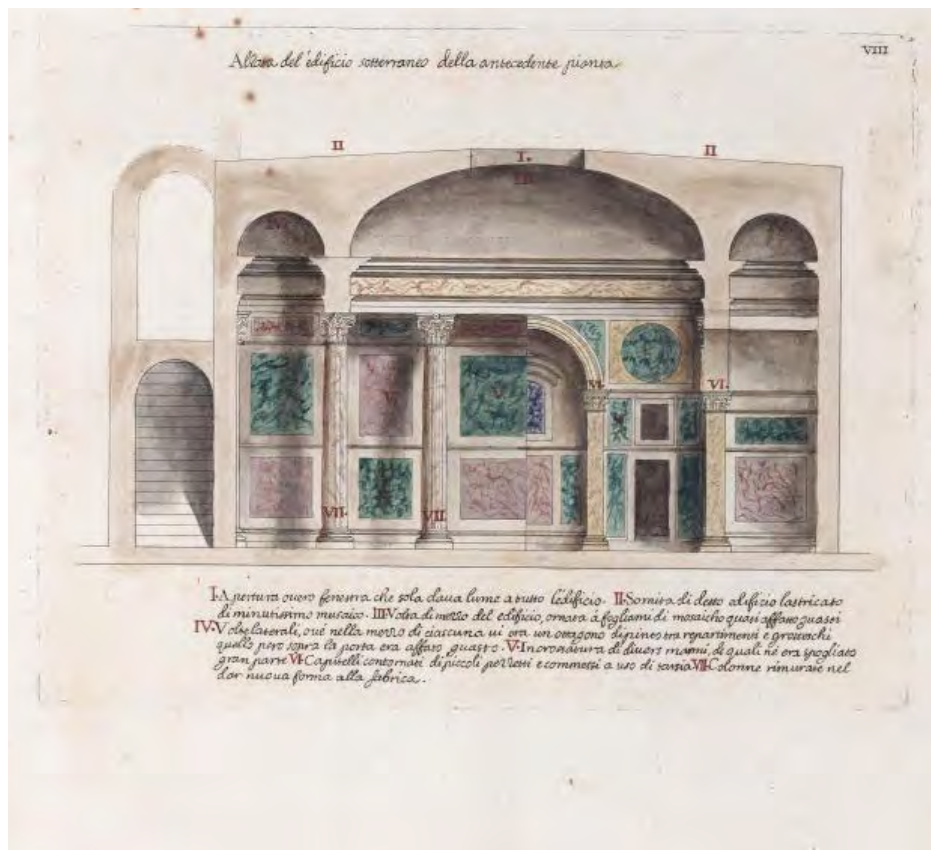 VIII
Alzata del edificio sotterraneo della antecedente pianta
II
I.
II
III
IV
IV
V
V
VI.
VI.
VII.
VII.
I. Apertura overo fenestra che sola dava lume a tutto l'edificio. II. Somita di detto adificio lastricato
di minutissimo musaico. III. Volta di mezzo del edificio, ornata à fogliami di mosaicho quasi affatto guasti
IV. Volte laterali, ove nella mezzo di ciascuna vi era un ottagono dipinto tra repartimenti e grotteschi
quello pero sopra la porta era affato guastro. V. Incronatura di diversi marmi, de quali ne era spogliato
gran parte VI. Capitelli contornati di piccoli pezzetti e commessi a uso di tarsia VII. Colonne rimurate nel
dar nuova forma alla fabrica.